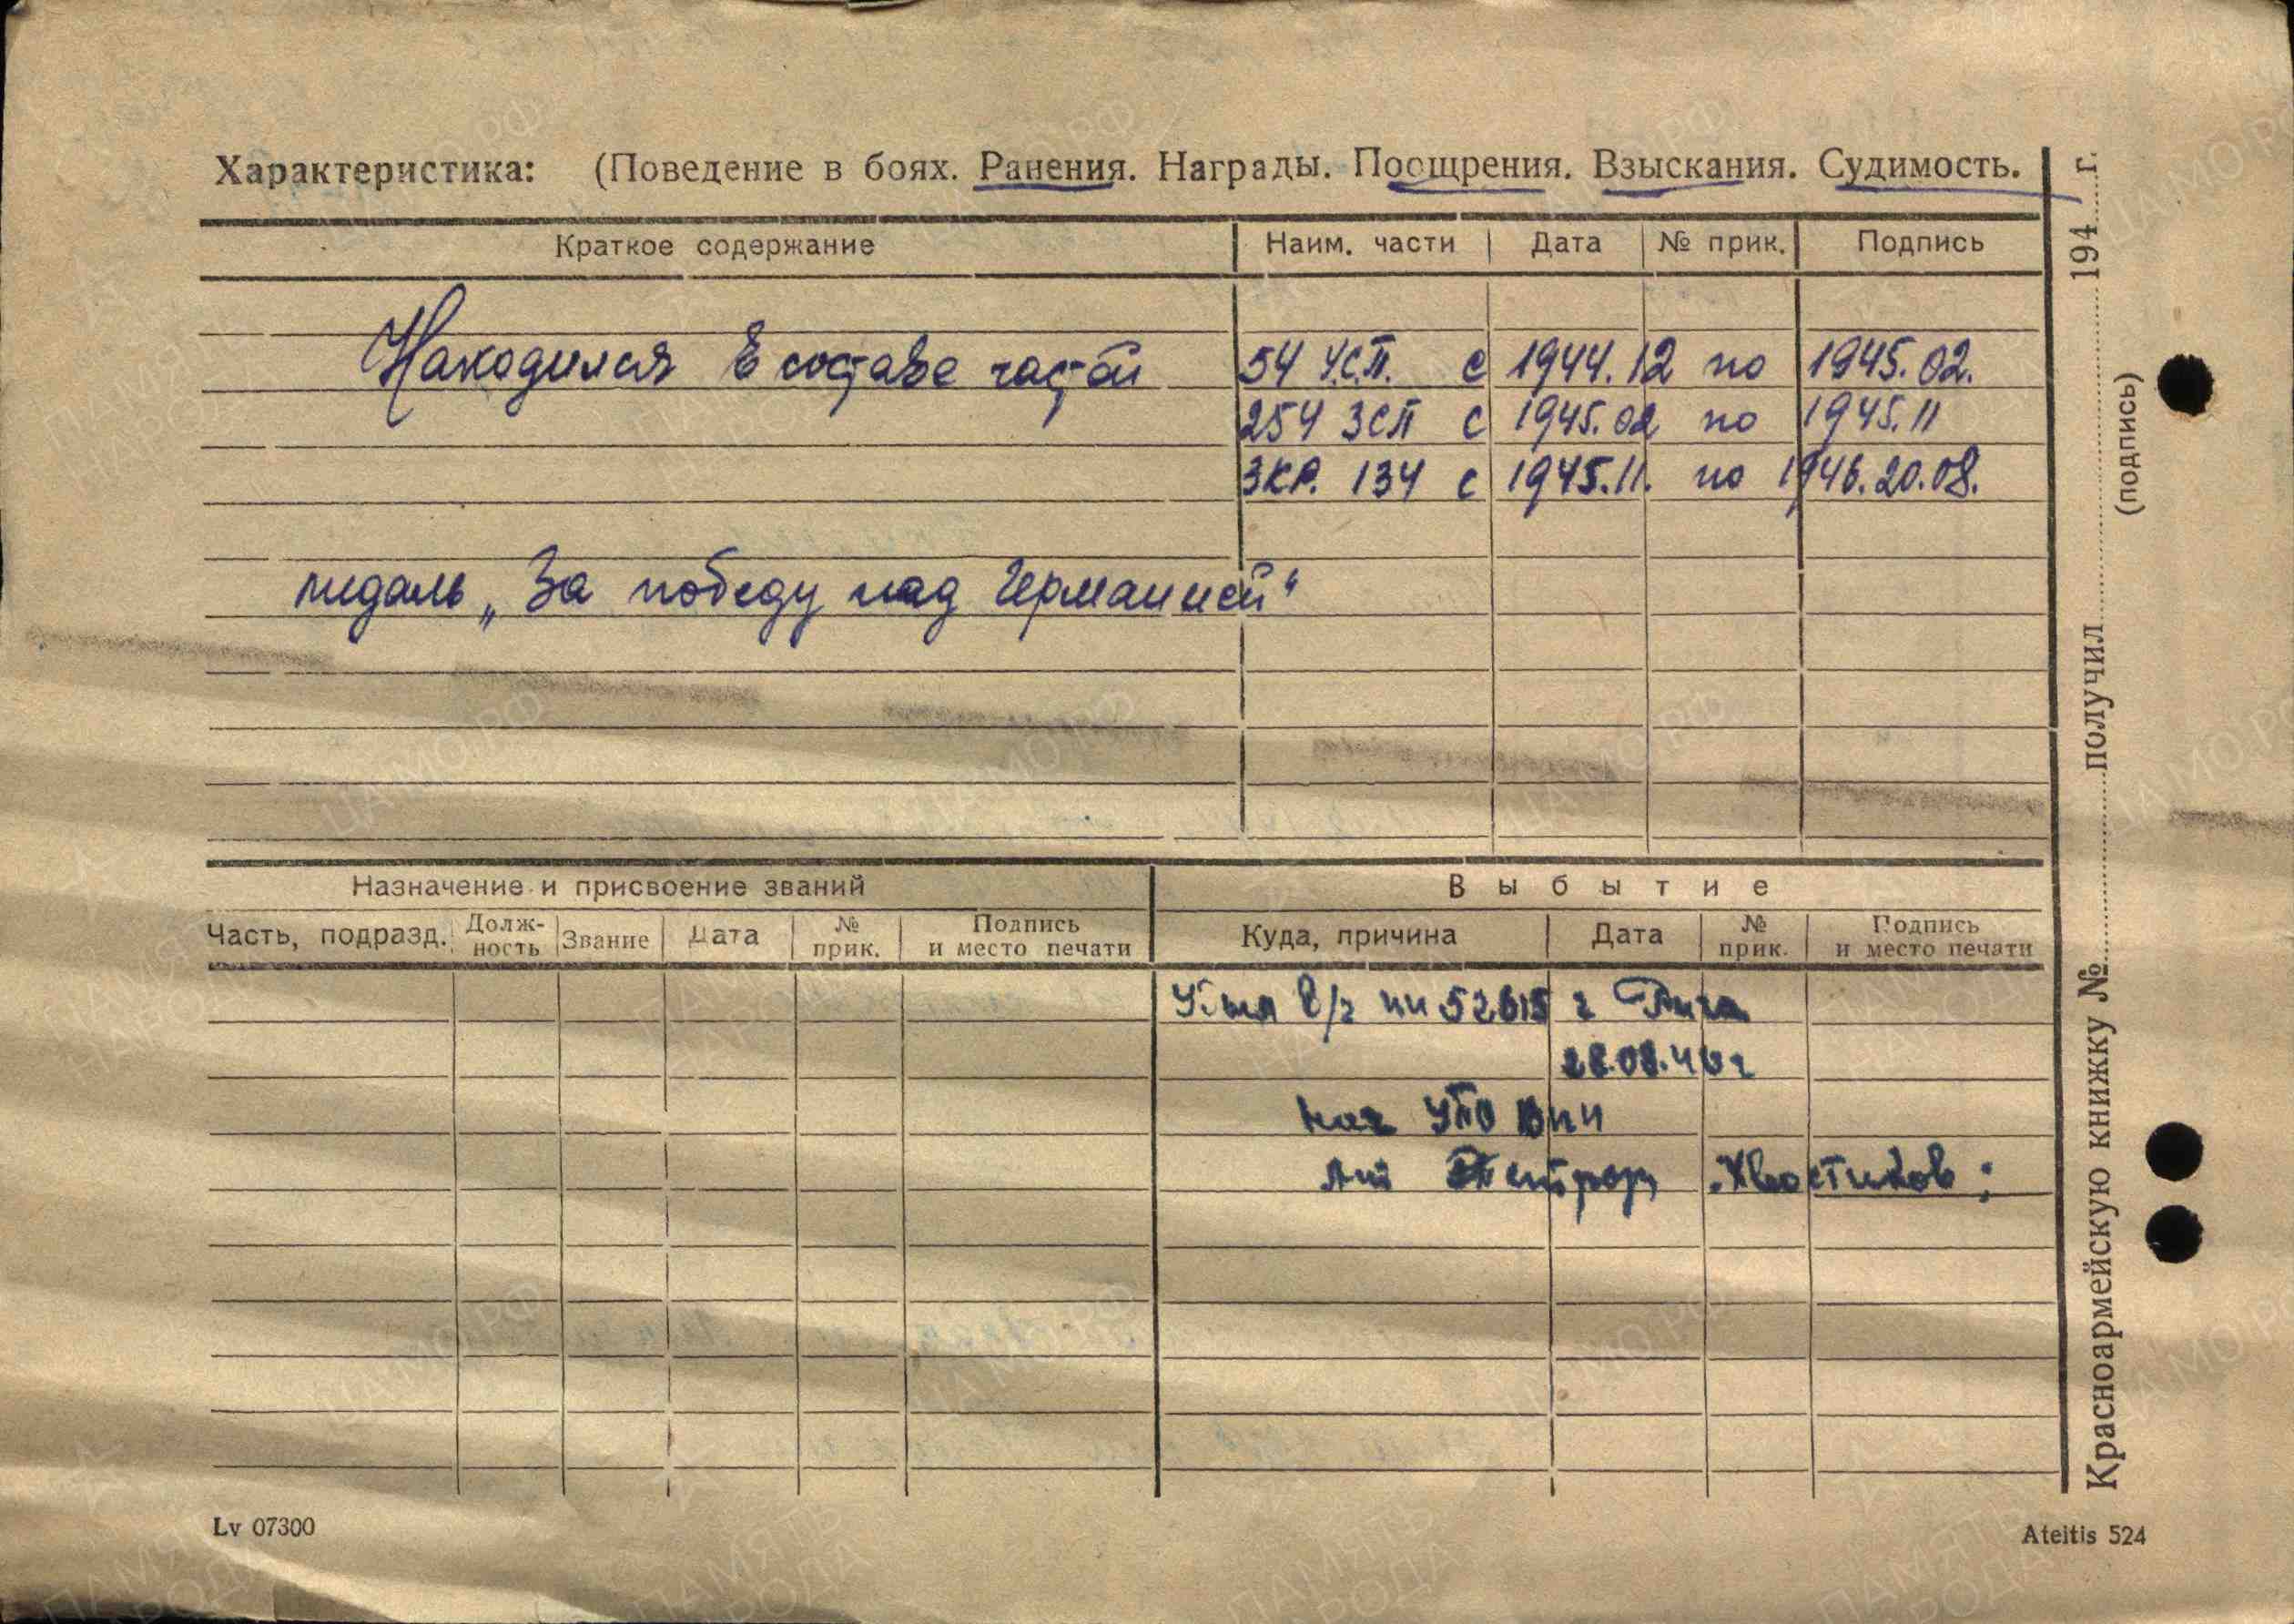 Характеристика: (Поведение в боях. Ранения. Награды. Поощрения. Взыскания. Судимость.
Краткое содержание Наим. части Дата № прик. Подпись
Находился в составе частей 54 У.С.П. с 1944.12 по 1945.02.
254 ЗСП с 1945.02 по 1945.11
ЗКР. 134 с 1945.11. по 1946.20.08.
медаль „За победу над Германией“
Назначение и присвоение званий Выбытие
Часть, подразд. Должность Звание Дата № прик. Подпись и место печати Куда, причина Дата № прик. Подпись и место печати
Убыл в/ч пп 52615 г Рига
28.08.46г
Нач УПО ВПП
Хвостиков
Lv 07300
Ateitis 524
Красноармейскую книжку № получил 194 г.
(подпись)
ПАМЯТЬ НАРОДА
ЦАМО.РФ